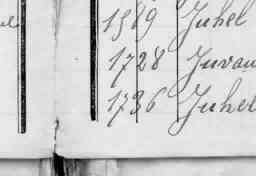 1589 Juhel
1728 Juvau
1736 Juhel